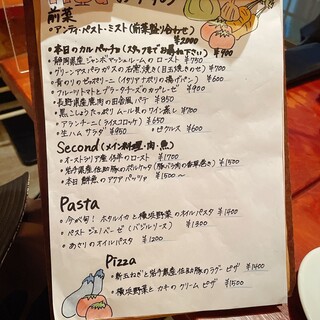 前菜
・アンティパスト・ミスト(前菜盛り合わせ)
¥2000
・本日のカルパッチョ(スタッフまでお尋ね下さい) ¥900
・静岡県産ジャンボマッシュルームのロースト ¥750
・グリーンアスパラガスの石窯焼き(目玉焼きのせ) ¥700
・青のりのゼッポリーニ(イタリアナポリの揚げパン) ¥600
・フルーツトマトとブラータチーズのカプレーゼ ¥900
・長野県産鹿肉の田舎風パテ ¥850
・黒こしょうたっぷり ムール貝のワイン蒸し ¥700
・アランチーニ(ライスコロッケ) ¥650
・生ハムサラダ ¥950 ・ピクルス ¥600
Second(メイン料理・肉・魚)
・オーストラリア産 仔羊のロースト ¥1700
・岩手県産 佐助豚のポルケッタ(豚バラ肉の香草巻き) ¥1500
・本日鮮魚のアクアパッツァ ¥1500～
Pasta
・今が旬! ホタルイカと横浜野菜のオイルパスタ ¥1400
・パスト ジェノベーゼ(バジルソース) ¥1300
・あさりのオイルパスタ ¥1200
Pizza
・新玉ねぎと岩手県産佐助豚のラグーピザ ¥1400
・横浜野菜とカキのクリームピザ ¥1500